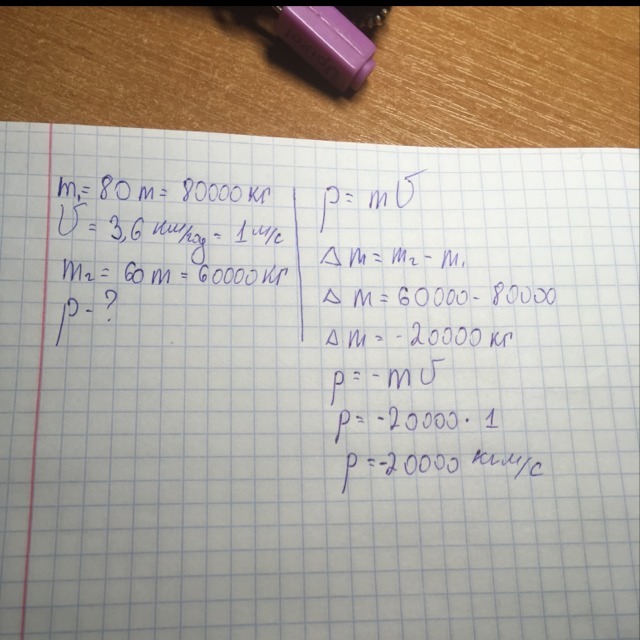 m₁ = 80 т = 80000 кг
v = 3,6 км/год = 1 м/с
m₂ = 60 т = 60000 кг
p - ?
p = mv
Δm = m₂ - m₁
Δm = 60000 - 80000
Δm = -20000 кг
p = -mv
p = -20000 · 1
p = -20000 кг м/с